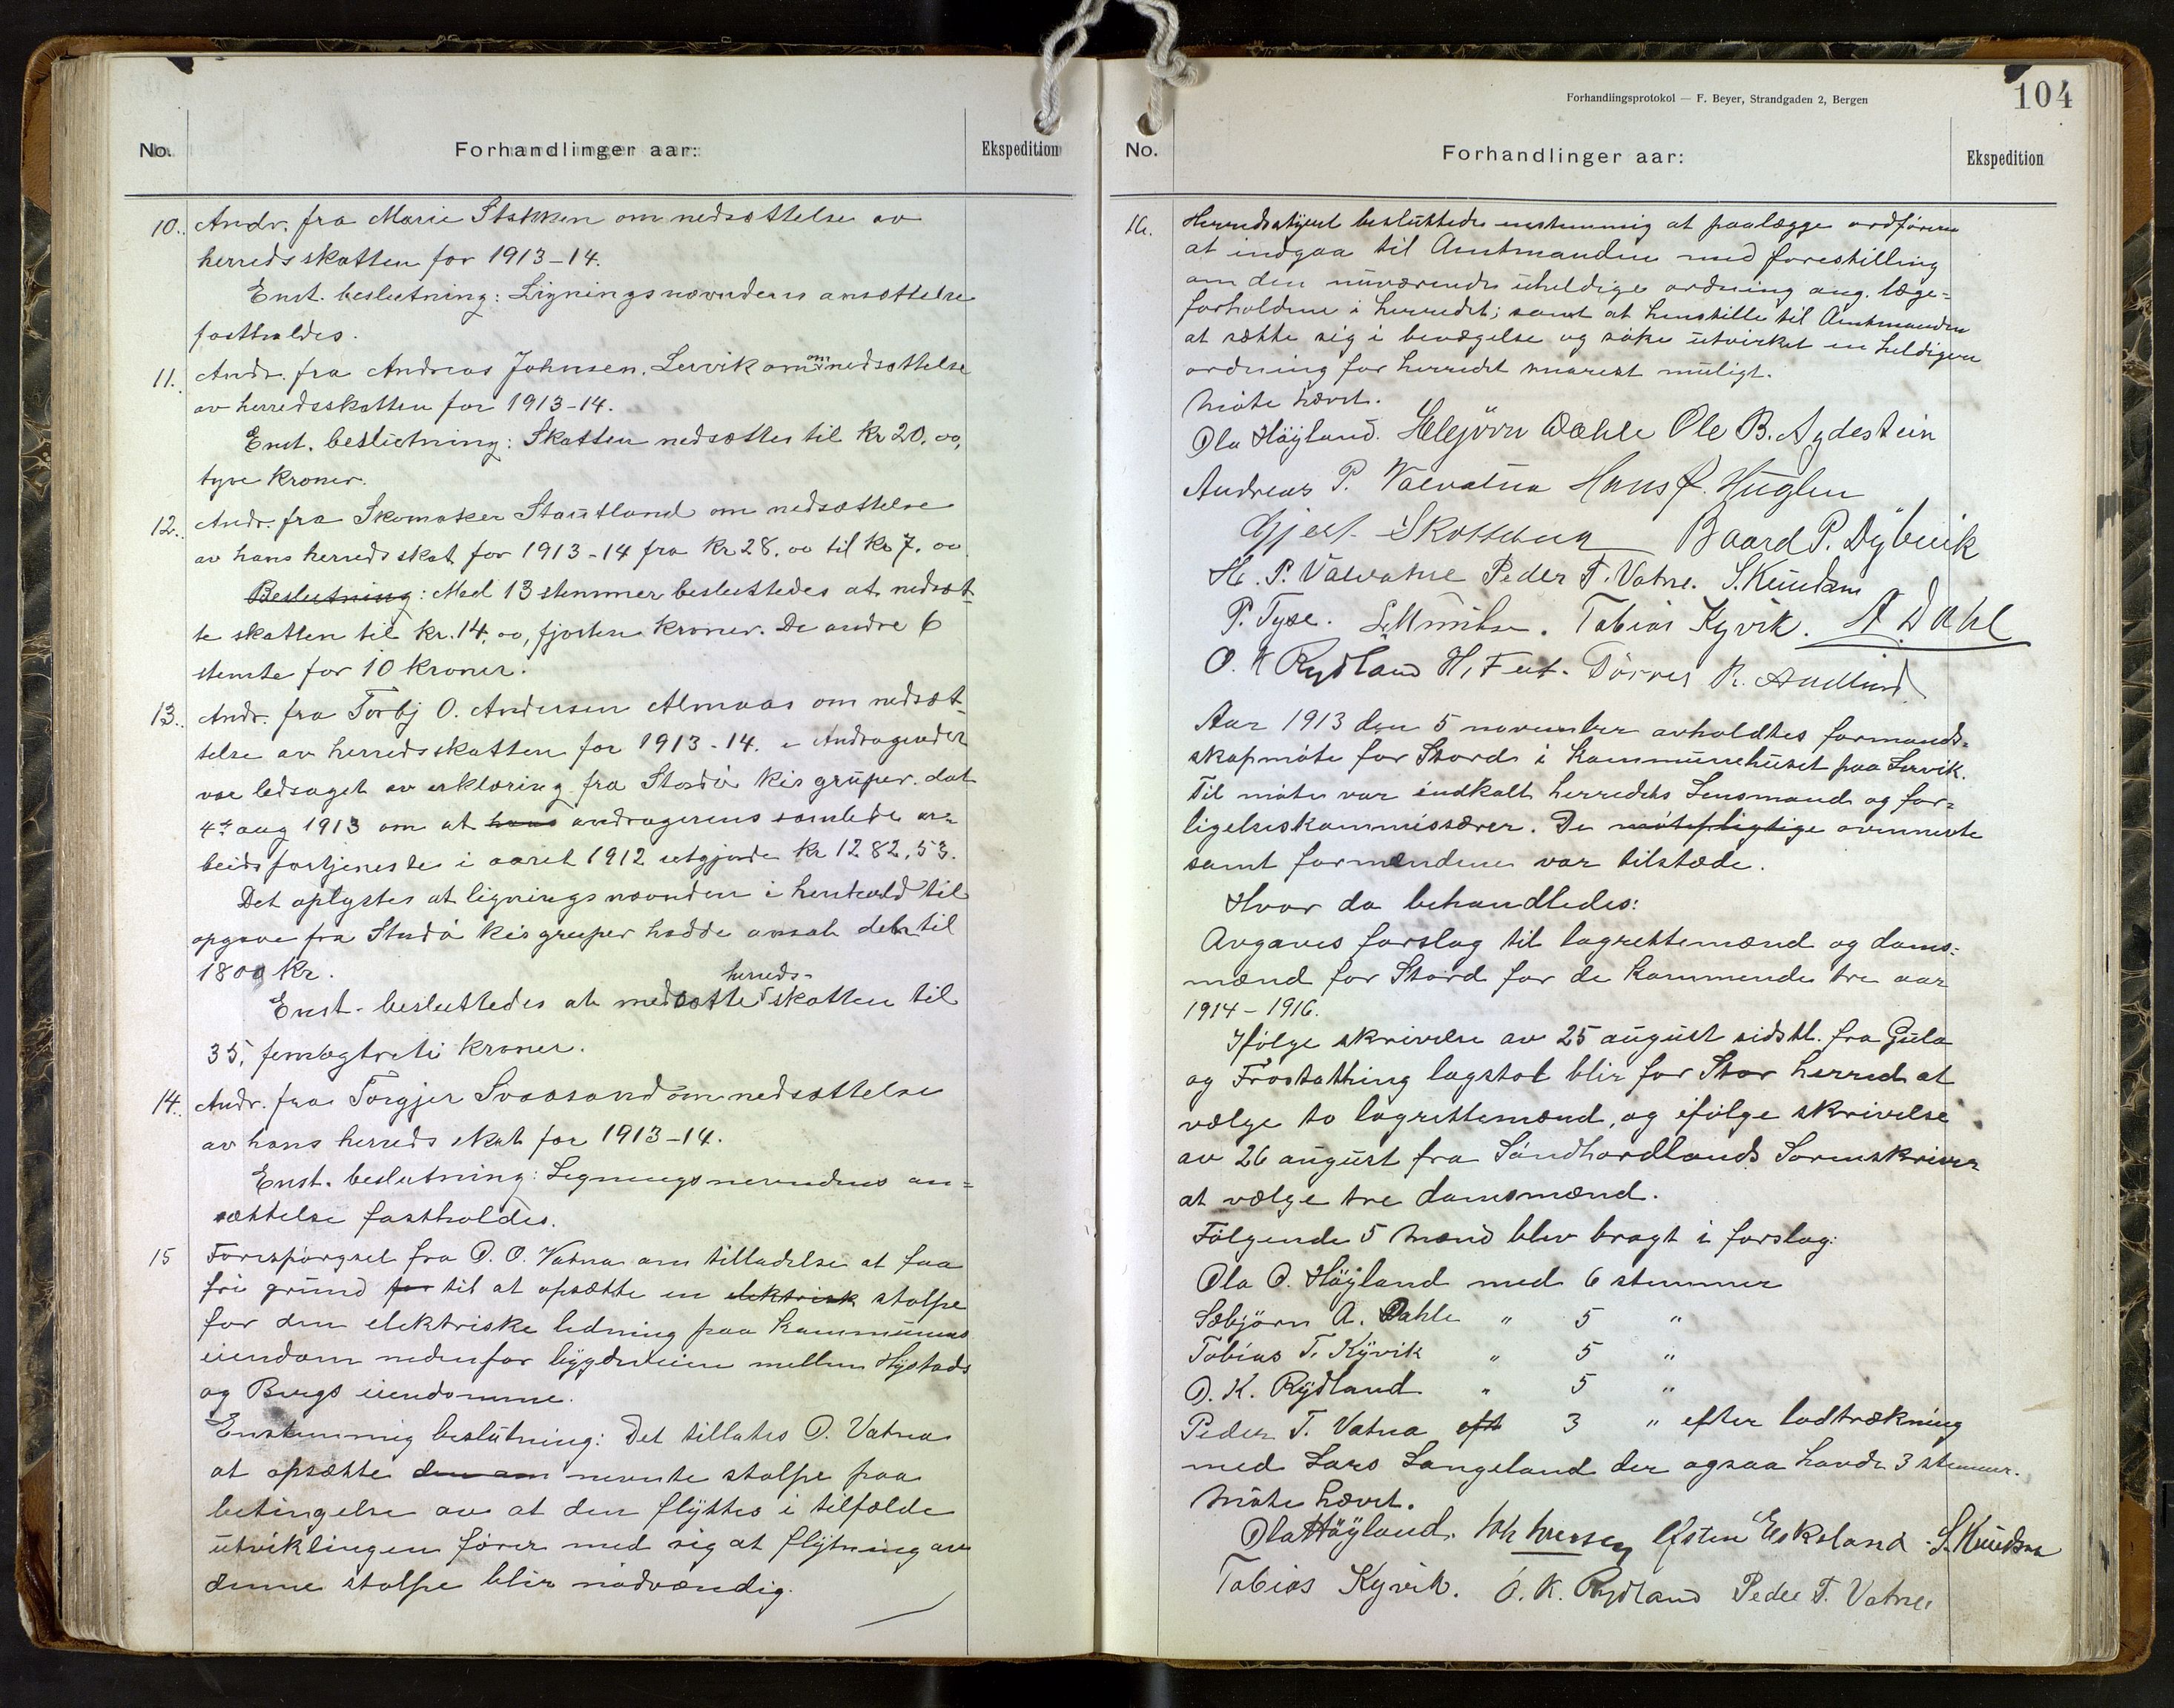 No.
Forhandlinger aar:
Ekspedition
10. Andr. fra Marie Stokken om nedsættelse av
herredsskatten for 1913-14.
Enst. beslutning: Ligningsnævndens ansættelse
fastholdes.
11. Andr. fra Andreas Johnsen, Lervik om nedsættelse
av herredsskatten for 1913-14.
Enst. beslutning: Skatten nedsættes til kr 20,00,
tyve kroner.
12. Andr. fra Skomaker Stautland om nedsættelse
av hans herredsskat for 1913-14 fra kr 28.00 til kr 7.00
Beslutning: Med 13 stemmer besluttedes at nedsæt-
te skatten til kr. 14,00, fjorten kroner. De andre 6
stemte for 10 kroner.
13. Andr. fra Torbj O. Andersen Almaas om nedsæt-
telse av herredsskatten for 1913-14. Andragendet
var ledsaget av erklæring fra Stordø kisgruper. dat
4de aug 1913 om at hans andragerens samlede ar-
beidsfortjeneste i aaret 1912 utgjorde kr 1282,53.
Det oplystes at ligningsnævnden i henhold til
opgave fra Stordø kisgruper hadde ansat den til
1800 kr.
Enst. besluttedes at nedsætte herreds-skatten til
35, femogtreti kroner.
14. Andr. fra Torgjer Svaasand om nedsættelse
av hans herredsskat for 1913-14.
Enst. beslutning: Ligningsnevndens an-
sættelse fastholdes.
15 Forespørgsel fra O. O. Vatna om tilladelse at faa
fri grund for til at opsætte en elektrisk stolpe
for den elektriske ledning paa kommunens
eiendom nedenfor bygdeveien mellem Hystads
og Bergs eiendomme.
Enstemmig beslutning: Det tillates O. Vatna
at opsætte den om nevnte stolpe paa
betingelse av at den flyttes i tilfælde
utviklingen fører med sig at flytning av
denne stolpe blir nødvendig.
Forhandlingsprotokol — F. Beyer, Strandgaden 2, Bergen
104
No.
Forhandlinger aar:
Ekspedition
16. Herredsstyret besluttede enstemmig at paalægge ordføreren
at indgaa til Amtmanden med forestilling
om den nuværende uheldige ordning ang. læge-
forholdene i herredet; samt at henstille til Amtmanden
at sætte sig i bevægelse og søke utvirket en heldigere
ordning for herredet snarest muligt.
Møte hævet.
Ola Høyland. Helejörn Dahle Ole B. Agdestein
Andreas P. Valvatna Hans J. Huglen
Gjert Skotsberg Baard P. Dybvik
H. P. Valvatne Peder T. Vatne. S. Knudsen
P. Tyse. Tobias Kyvik. A Dahl
O. K Rydland H. Feet. Tørres R. Aadland
Aar 1913 den 5 november avholdtes formand-
skapmøte for Stord i kommunehuset paa Lervik.
Til møte var indkalt herredets Lensmand og for-
ligelseskommissærer. De møtepligtige ovennevnte
samt formændene var tilstæde.
Hvor da behandledes:
Avgaves forslag til lagrettemænd og doms-
mænd for Stord for de kommende tre aar
1914-1916.
Ifølge skrivelse av 25 august sidstl. fra Gula
og Frostathing lagstol blir for Stor herred at
vælge to lagrettemænd, og ifølge skrivelse
av 26 august fra Søndhordlands Sorenskriver
at vælge tre domsmænd.
Følgende 5 mænd blev bragt i forslag:
Ola O. Høyland med 6 stemmer
Sæbjørn A. Dahle " 5 "
Tobias T. Kyvik " 5 "
O. K. Rydland " 5 "
Peder T. Vatna eft 3 " efter lodtrækning
med Lars Langeland der ogsaa havde 3 stemmer.
Møte hævet.
Ola Høyland. Joh Iversen Østen Eskeland S. Knudsen
Tobias Kyvik. O. K. Rydland Peder T. Vatne